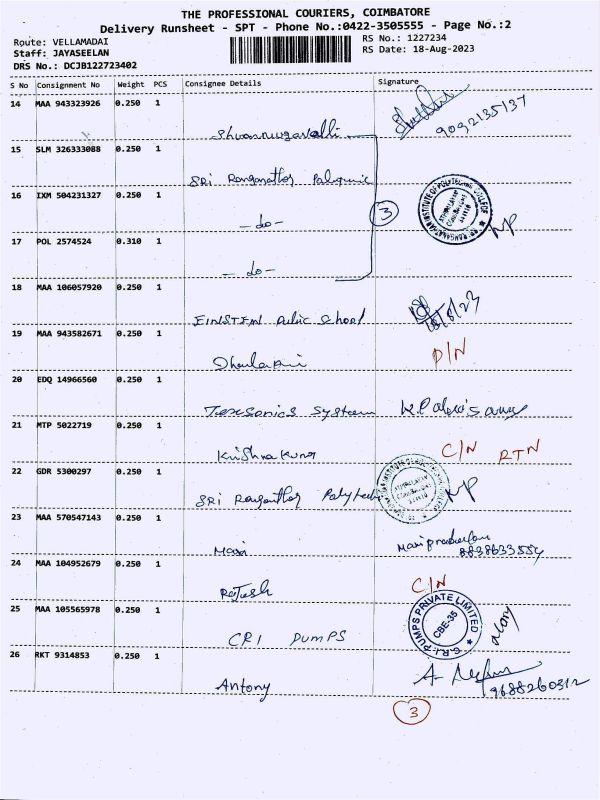 THE PROFESSIONAL COURIERS, COIMBATORE
Delivery Runsheet - SPT - Phone No.:0422-3505555 - Page No.:2
Route: VELLAMADAI
RS No.: 1227234
Staff: JAYASEELAN
RS Date: 18-Aug-2023
DRS No.: DCJB122723402
S No Consignment No Weight PCS Consignee Details Signature
14 MAA 943323926 0.250 1
9092135137
15 SLM 326333088 0.250 1
SRi
16 IXM 504231327 0.250 1
-do-
3
17 POL 2574524 0.310 1
-do-
18 MAA 106057920 0.250 1
EINSTEIN Public School
19 MAA 943582671 0.250 1
D/N
20 EDQ 14966560 0.250 1
System
21 MTP 5022719 0.250 1
Krishnakumar C/N RTN
22 GDR 5300297 0.250 1
SRi
23 MAA 570547143 0.250 1
Mari
8838633554
24 MAA 104952679 0.250 1
Rajesh C/N
25 MAA 105565978 0.250 1
CRI PUMPS
C.R.I. PUMPS PRIVATE LIMITED
CBE-35
26 RKT 9314853 0.250 1
Antony
9688260312
3